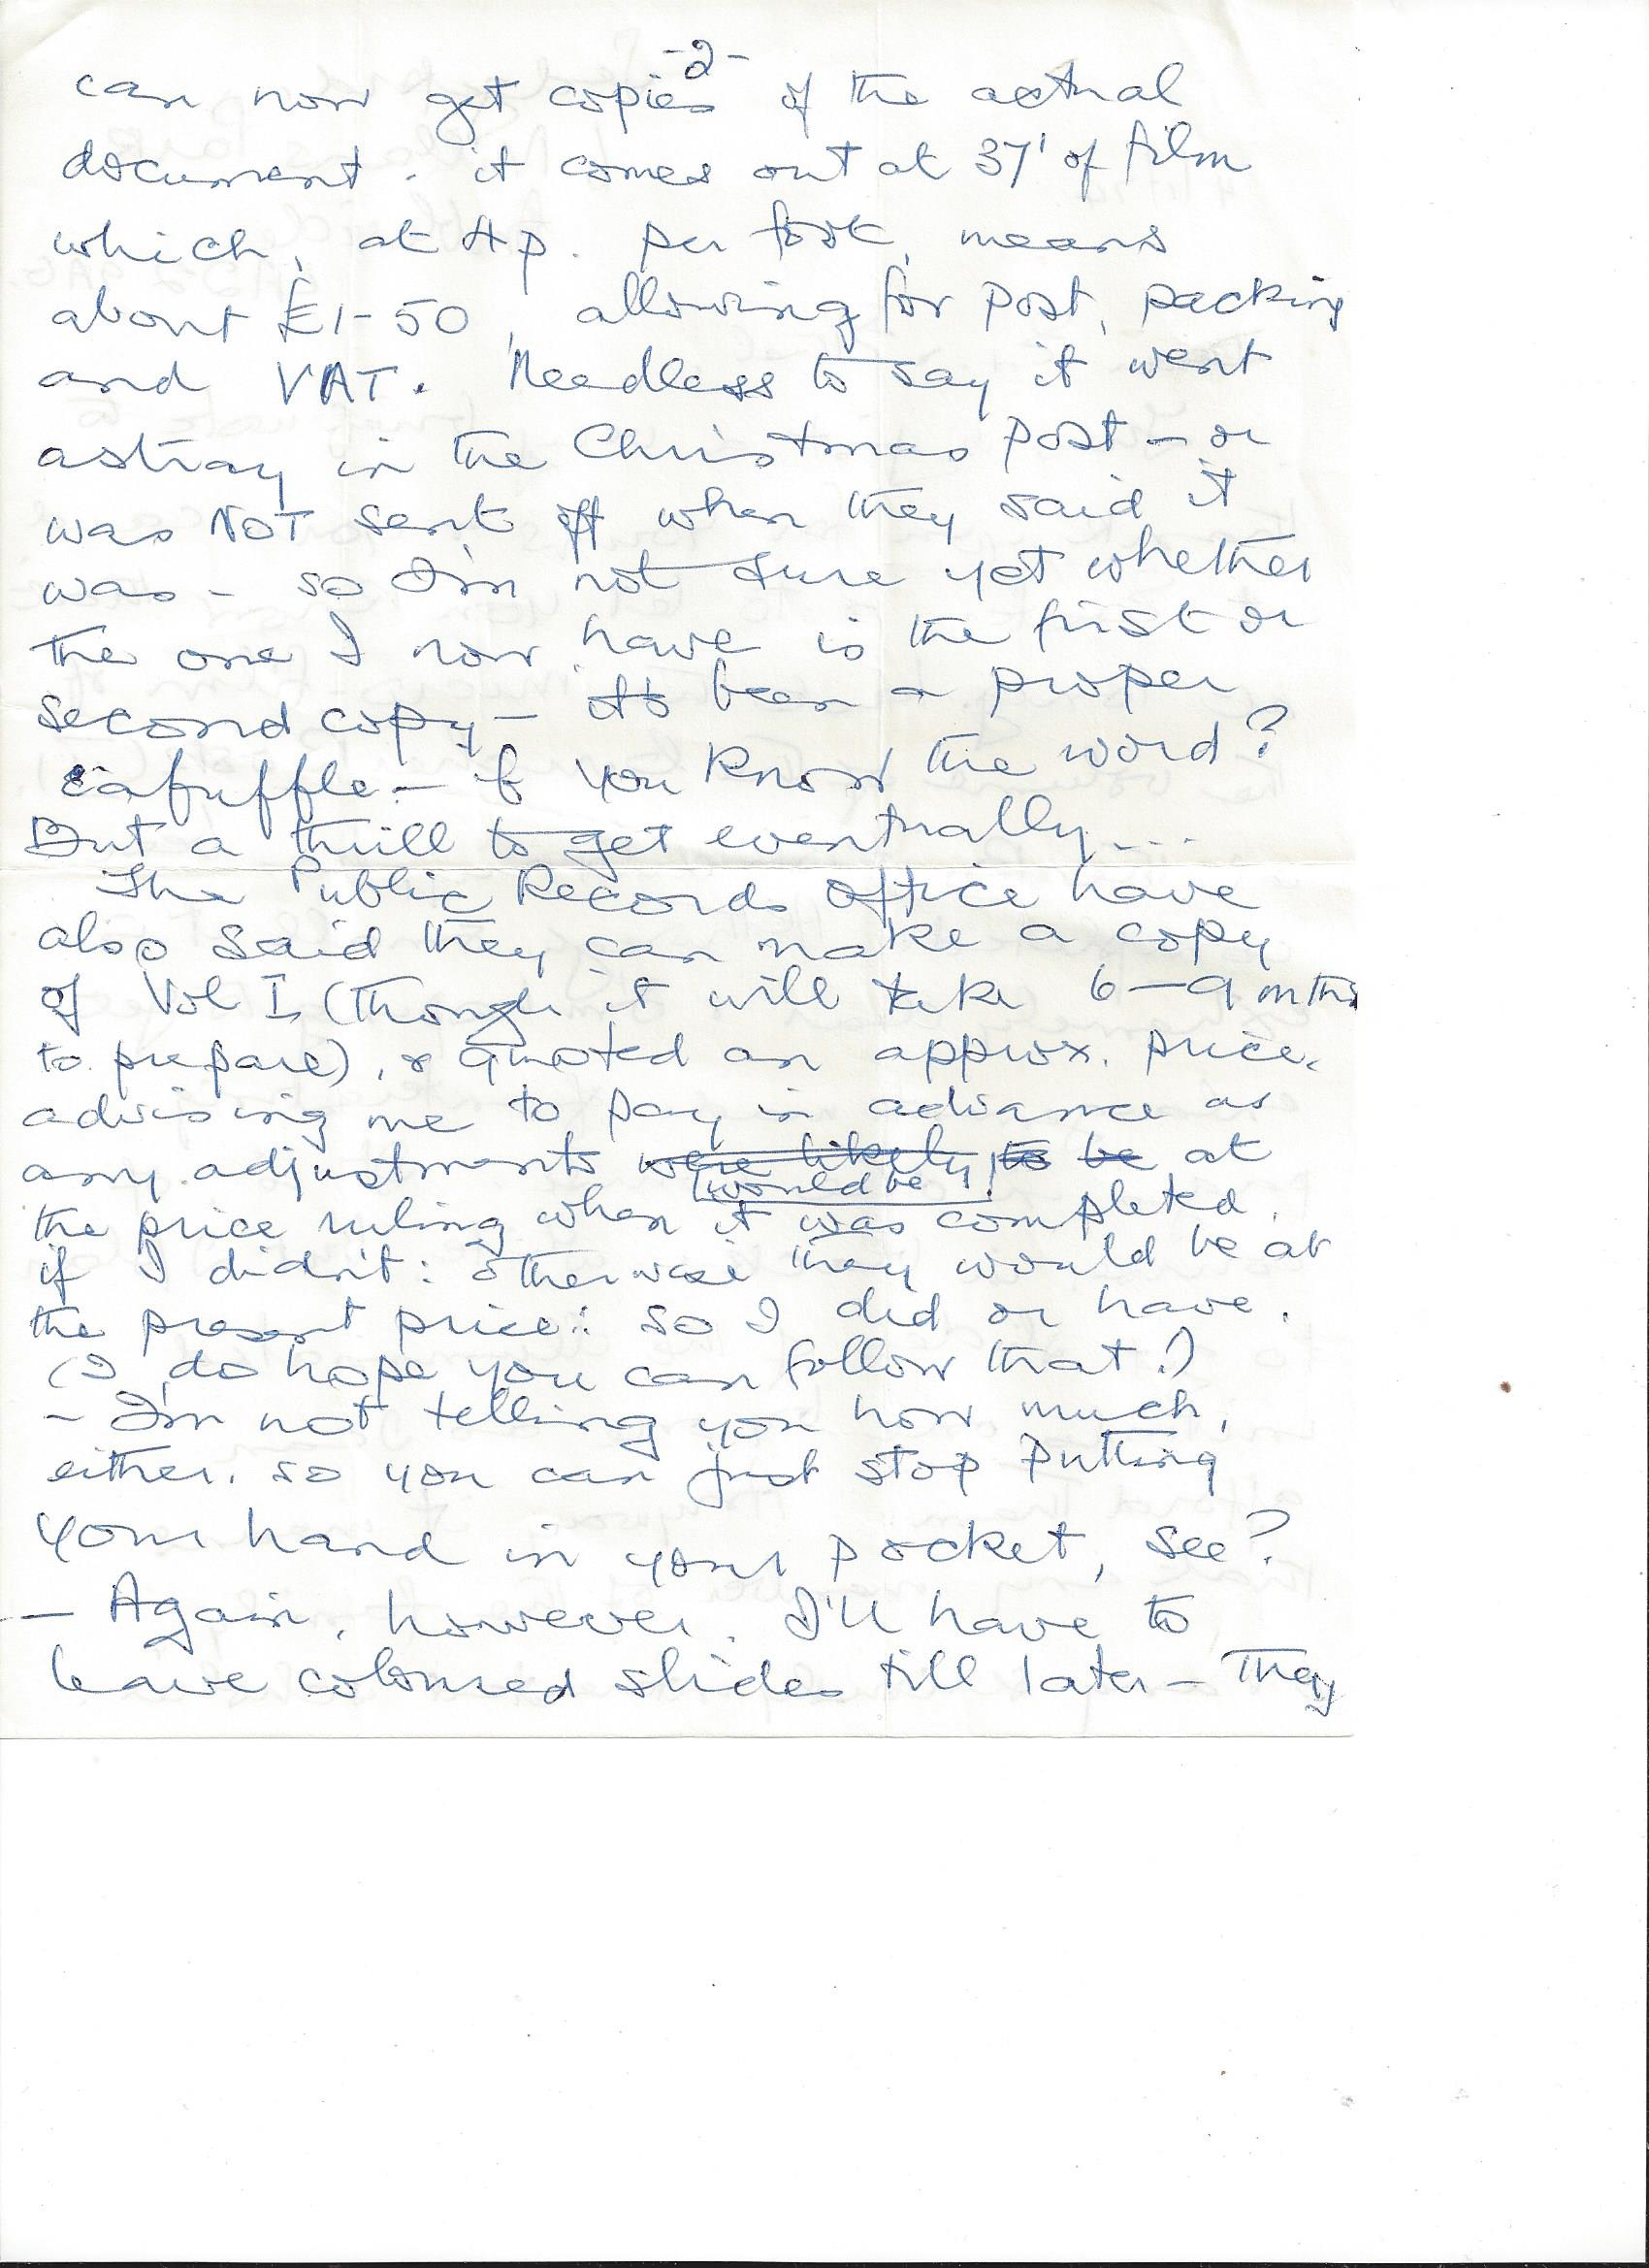 -2-
can now get copies of the actual
document. it comes out at 37' of film
which, at 4p. per foot, means
about £1-50, allowing for post, packing
and VAT. Needless to say it went
astray in the Christmas post - or
was NOT sent off when they said it
was - so I'm not sure yet whether
the one I now have is the first or
second copy - its been a proper
cafuffle - if you know the word?
But a thrill to get eventually...
The Public Records Office have
also said they can make a copy
of Vol I, (though it will take 6-9 mths
to prepare), & quoted an approx. price,
advising me to pay in advance as
any adjustments were likely to be at
would be
the price ruling when it was completed,
if I didn't: otherwise they would be at
the present price: so I did or have.
(I do hope you can follow that!)
- I'm not telling you how much,
either, so you can just stop putting
your hand in your pocket, see?
- Again, however, I'll have to
leave coloured slides till later - they